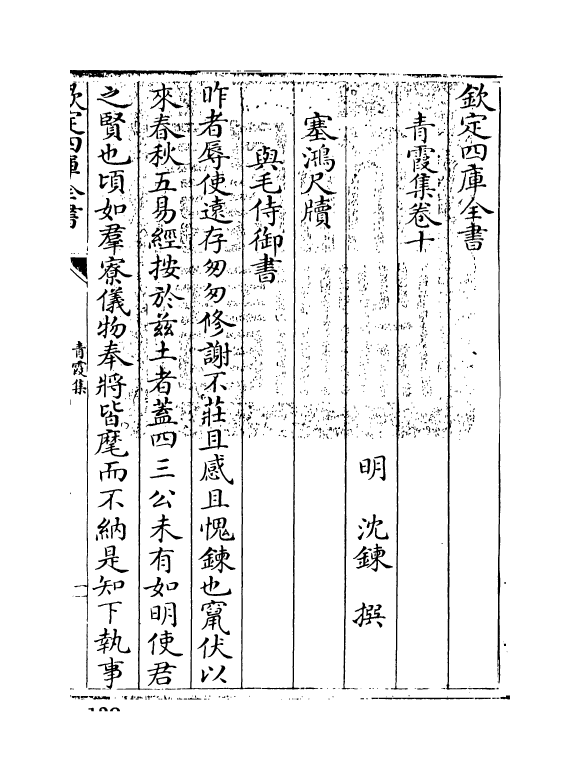 欽定四庫全書
青霞集卷十
明　沈鍊　撰
塞鴻尺牘
與毛侍御書
昨者辱使遠存匆匆修謝不莊且感且愧鍊也竄伏以
來春秋五易經按於茲土者蓋四三公未有如明使君
之賢也頃如羣寮儀物奉將皆麾而不納是知下執事
欽定四庫全書
青霞集
一